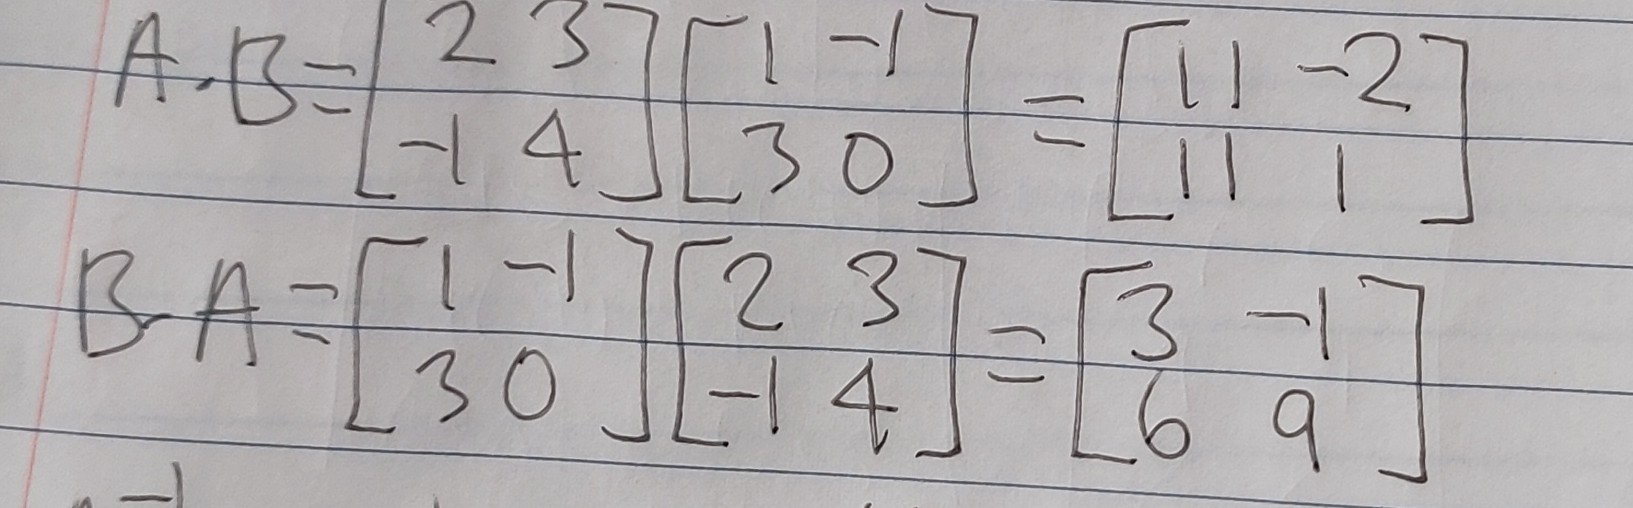 A·B= [2 3 -1 4] [1 -1 3 0] = [11 -2 11 1]
B·A= [1 -1 3 0] [2 3 -1 4] = [3 -1 6 9]
-1